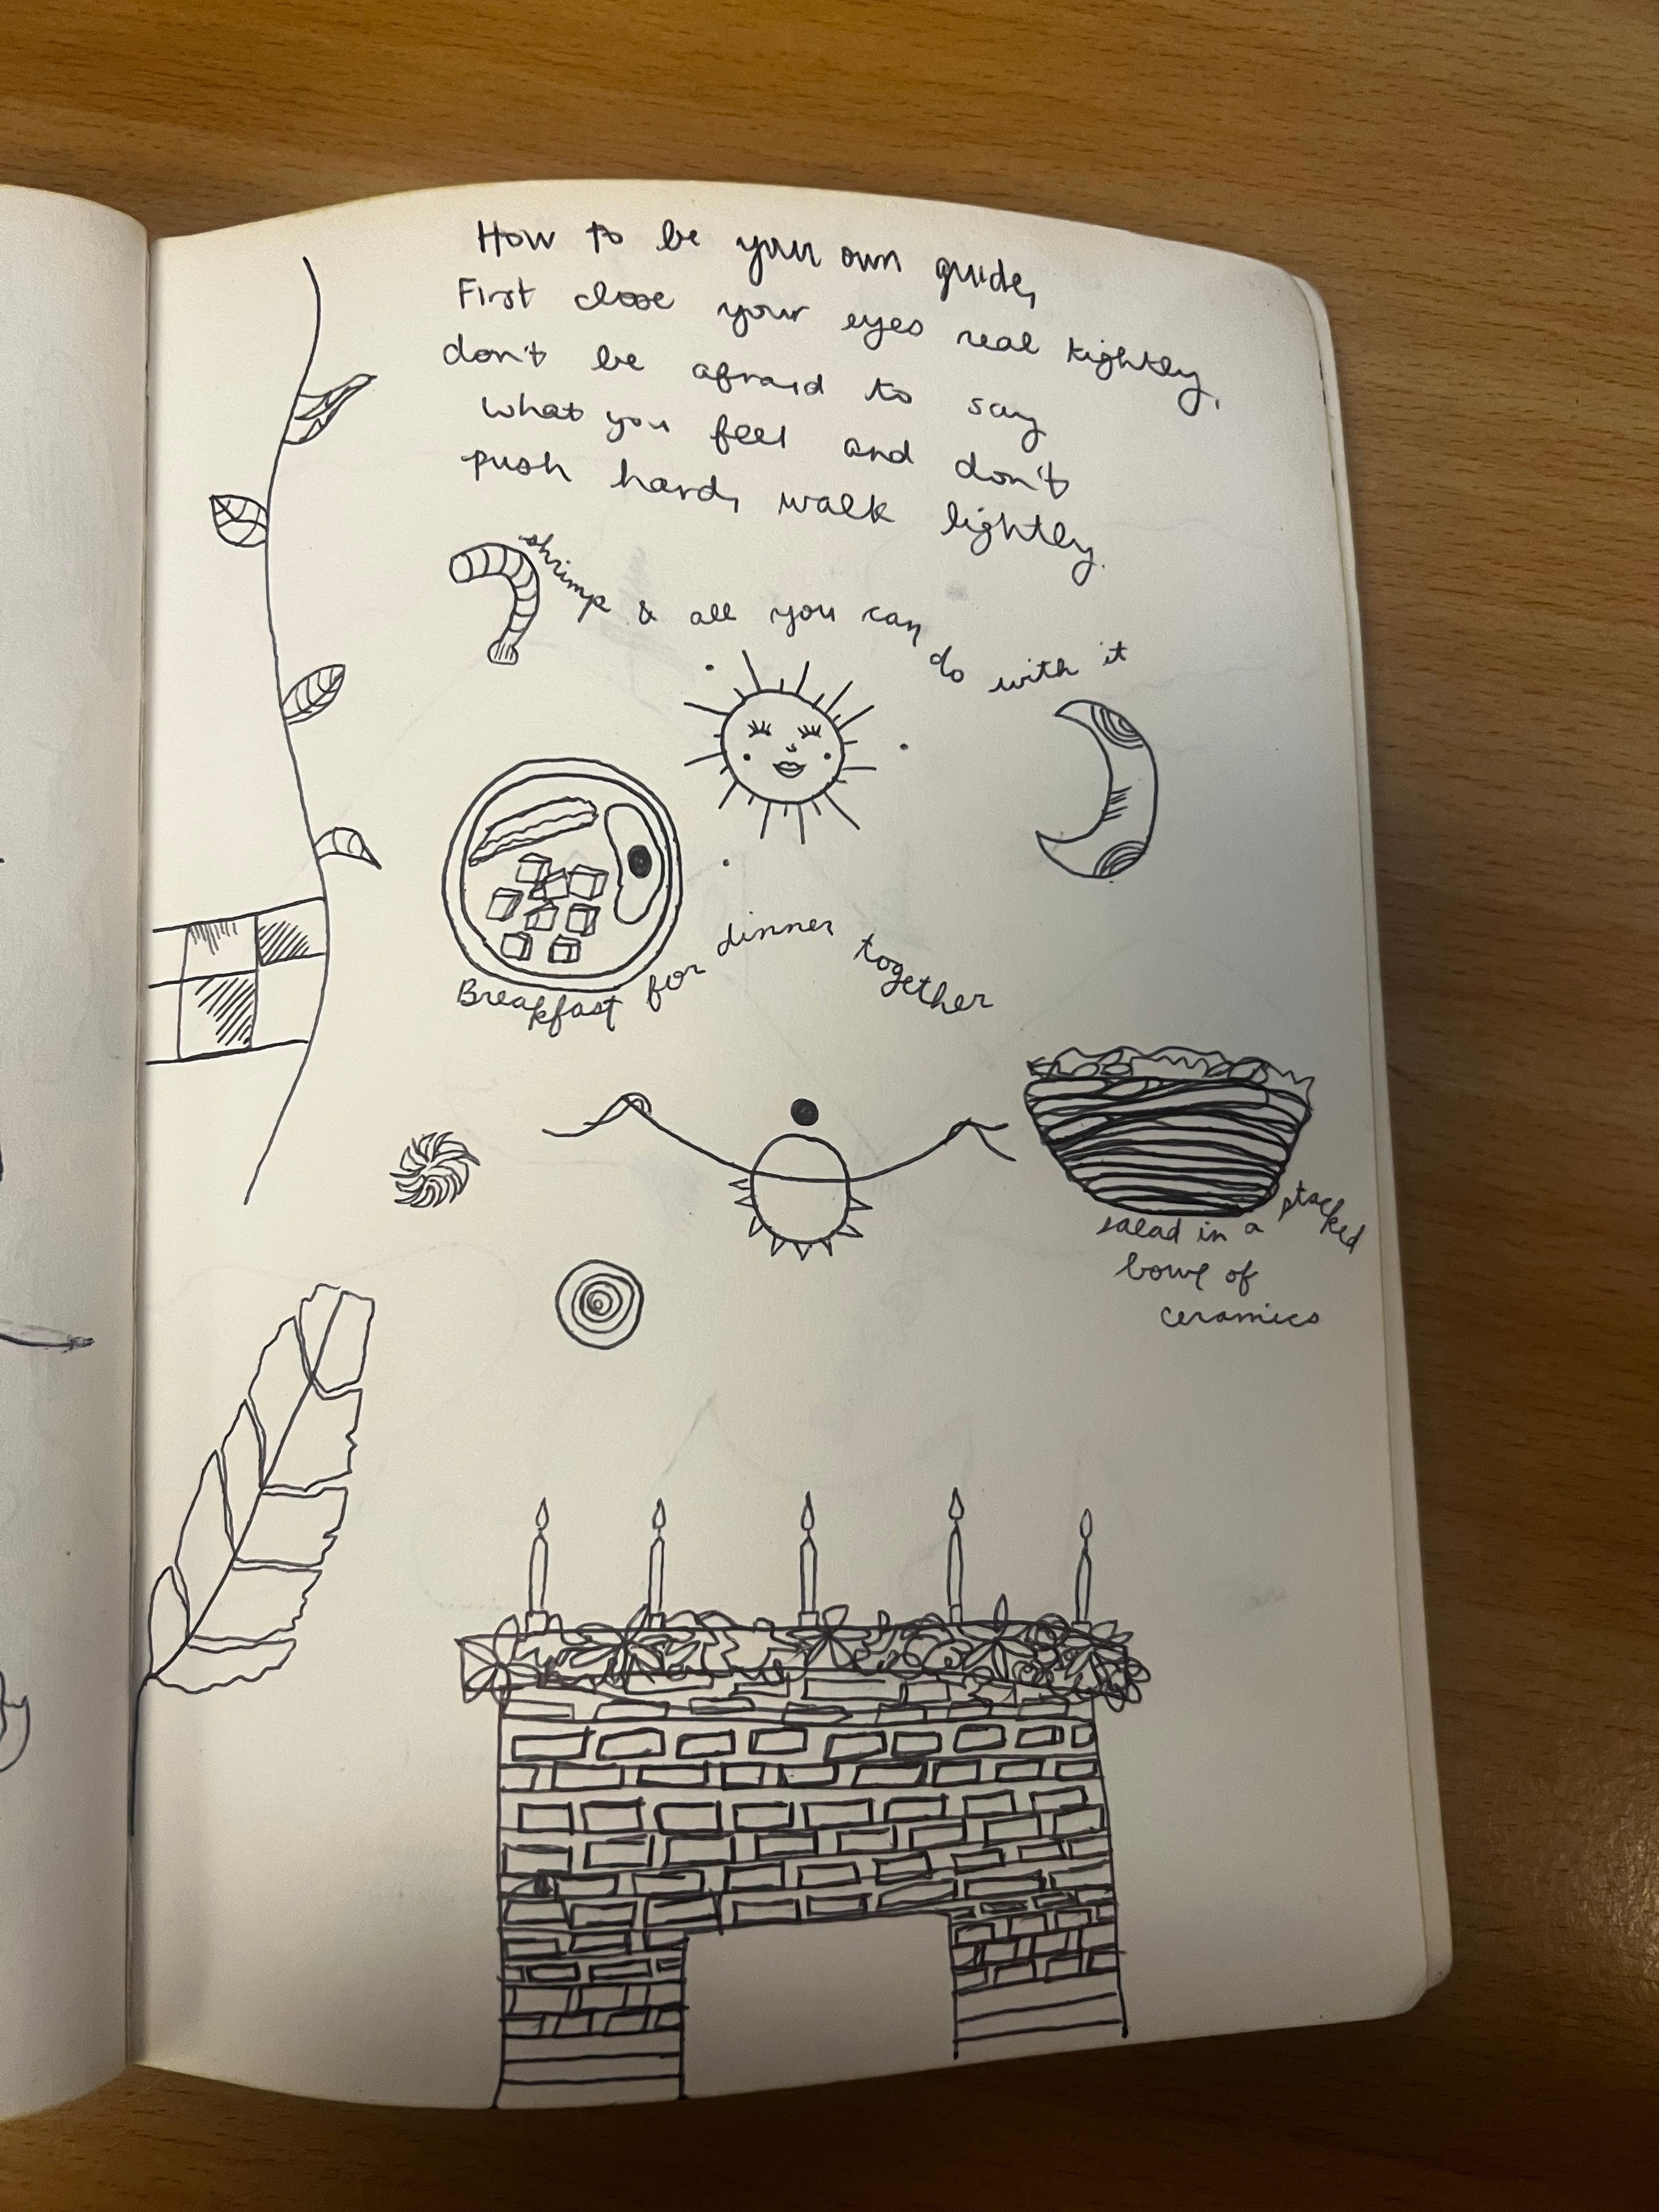 How to be your own guide,
First close your eyes real tightly,
don't be afraid to say
what you feel and don't
push hard, walk lightly.
shrimp & all you can do with it
Breakfast for dinner together
salad in a stacked
bowl of
ceramics